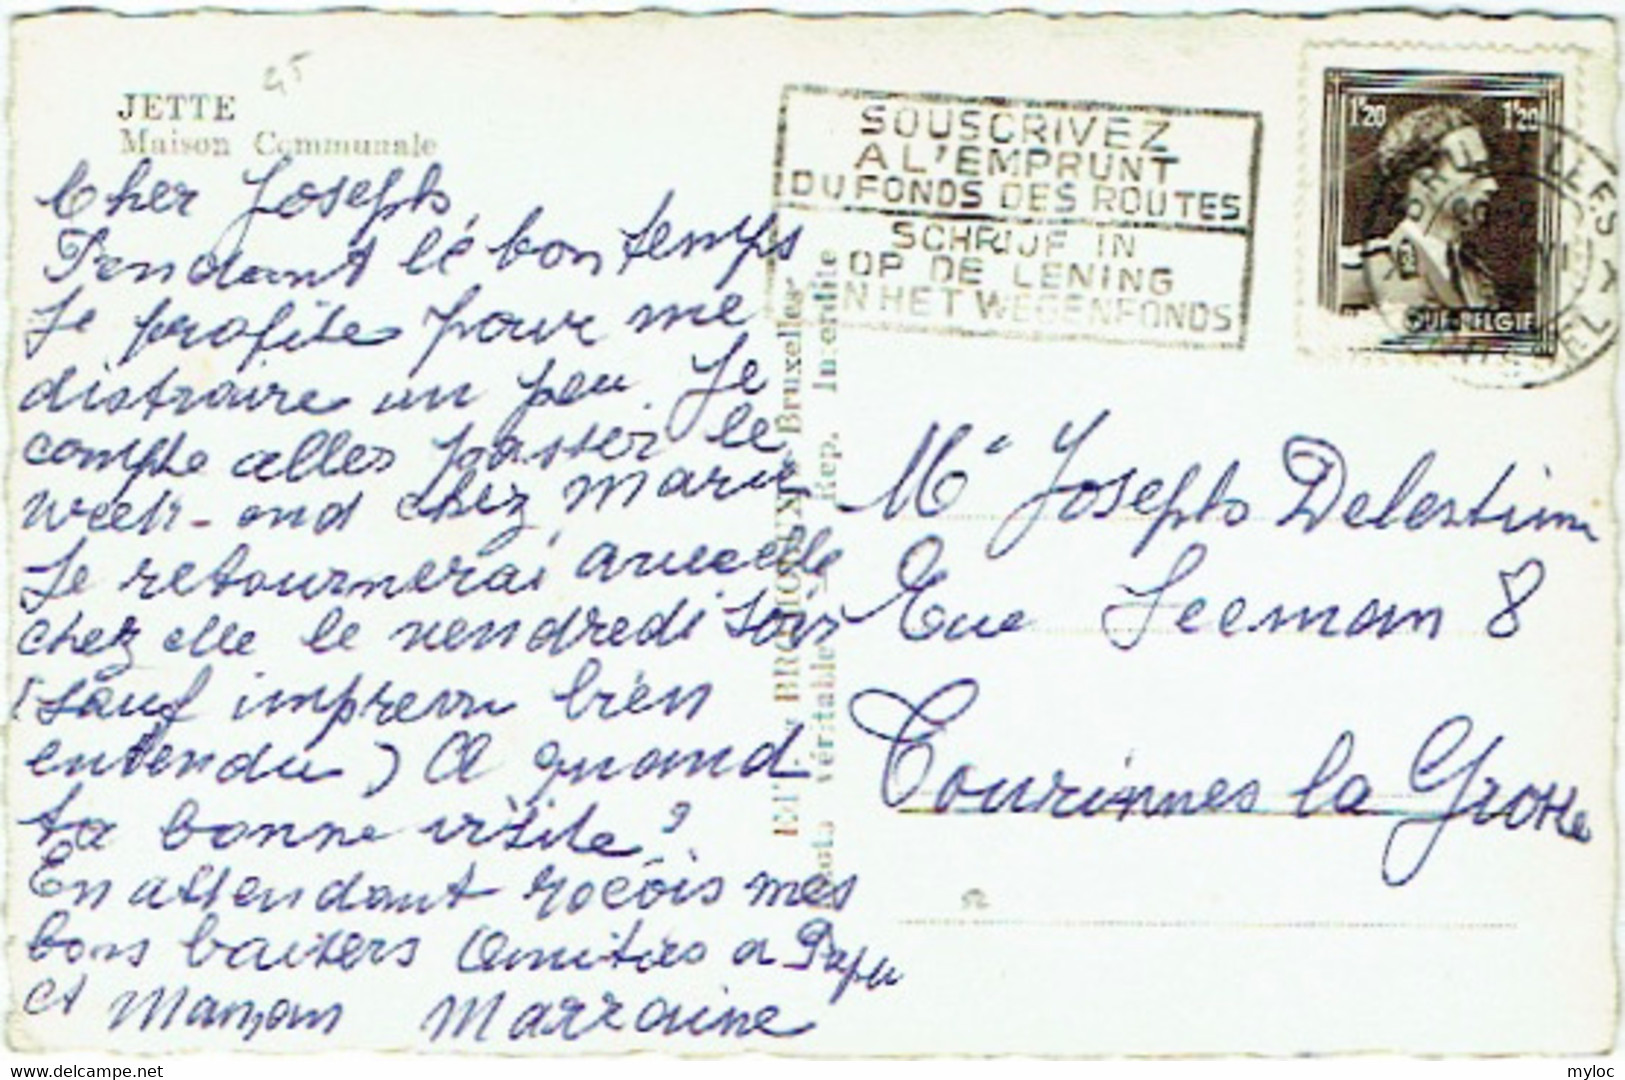 JETTE
Maison Communale
Cher Joseph,
Pendant le bon temps
je profite pour me
distraire un peu. Je
compte alles passer le
week-end chez Marie
Je retournerai avec elle
chez elle le vendredi soir
(sauf imprevu bien
entendu) A quand
ta bonne visite?
En attendant reçois mes
bons baisers Amitiés a Papa
et Maman Marraine
SOUSCRIVEZ
A L'EMPRUNT
DU FONDS DES ROUTES
SCHRIJF IN
OP DE LENING
HET WEGENFONDS
1F20 1F20
BELGIE
Bruxelles
Rep. Interdite
véritable
Mr Joseph Delestinne
Rue Leeman 8
Tourinnes la Grosse
myloc